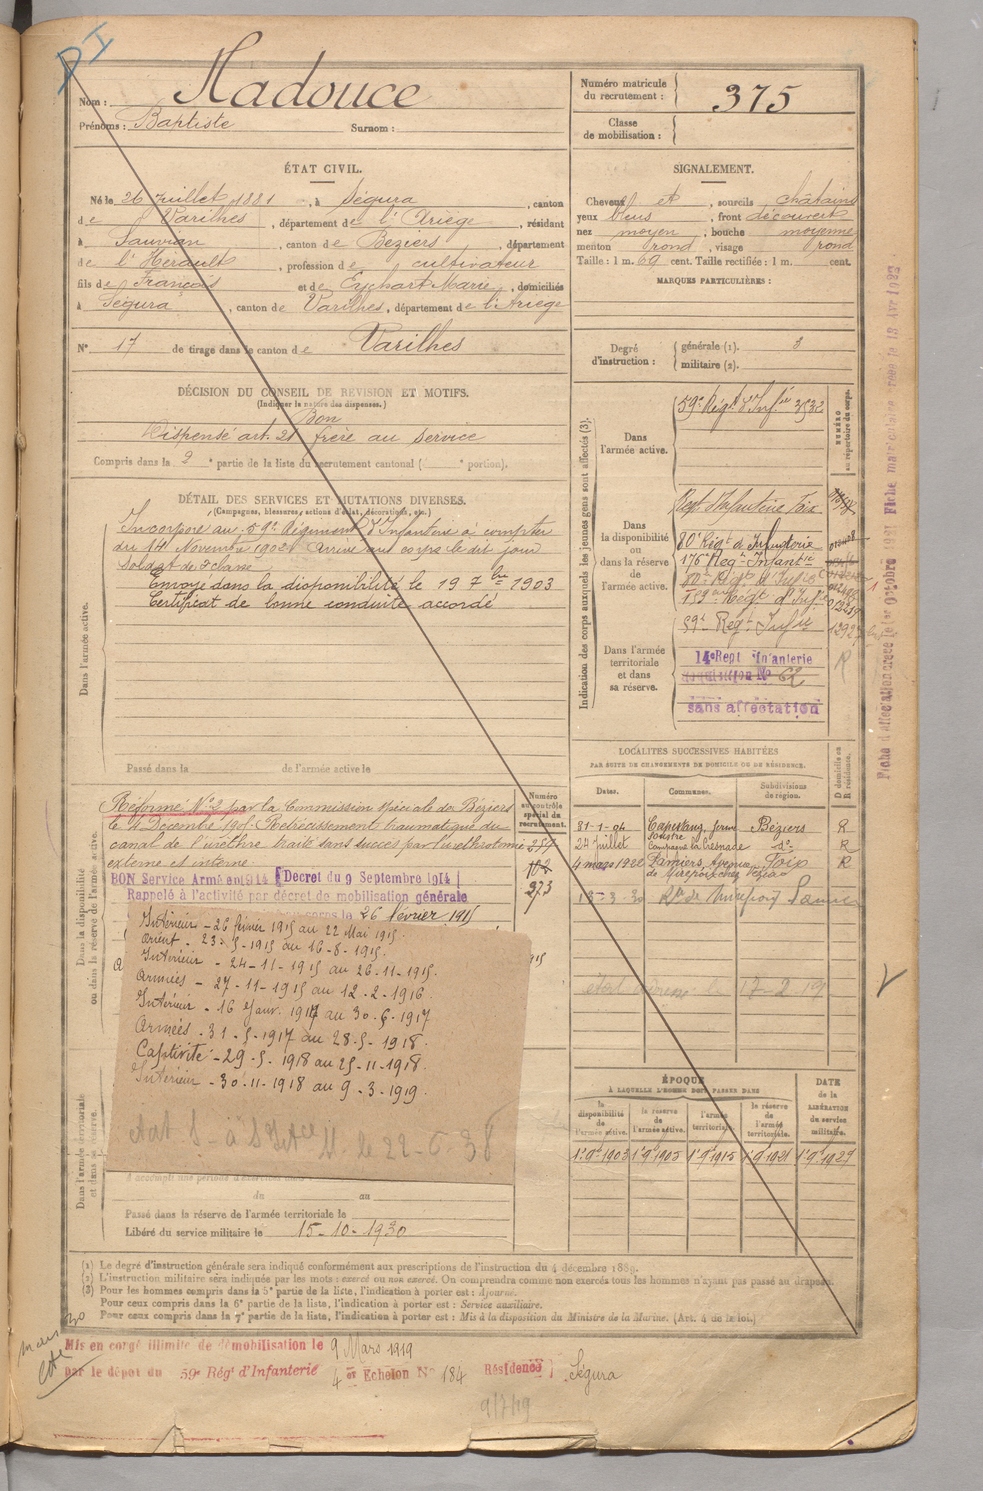 DI
Nom : Madouce
Prénoms : Baptiste Surnom :
Numéro matricule du recrutement : 375
Classe de mobilisation :
ÉTAT CIVIL.
Né le 26 Juillet 1881, à Ségura, canton
de Varilhes, département de l'Ariège, résidant
à Sauvian, canton de Béziers, département
de l'Hérault, profession de cultivateur
fils de François et de Eychart Marie, domiciliés
à Ségura, canton de Varilhes, département de l'Ariège
N° 17 de tirage dans le canton de Varilhes
SIGNALEMENT.
Cheveux et, sourcils châtains
yeux bleus, front découvert
nez moyen, bouche moyenne
menton rond, visage rond
Taille : 1 m. 69 cent. Taille rectifiée : 1 m. cent.
MARQUES PARTICULIÈRES :
Degré d'instruction : générale (1). 3
militaire (2).
DÉCISION DU CONSEIL DE RÉVISION ET MOTIFS.
(Indiquer la nature des dispenses.)
Bon
Dispensé art. 21 frère au service
Compris dans la 2e partie de la liste du recrutement cantonal ( e portion).
DÉTAIL DES SERVICES ET MUTATIONS DIVERSES.
(Campagnes, blessures, actions d'éclat, décorations, etc.)
Dans l'armée active.
Incorporé au 59e Régiment d'Infanterie à compter
du 14 Novembre 1902 Arrivé au corps le dit jour
Soldat de 2e classe
Envoyé dans la disponibilité le 19 7bre 1903
Certificat de bonne conduite accordé
Passé dans la de l'armée active le
Indication des corps auxquels les jeunes gens sont affectés (3).
NUMÉRO au répertoire du corps.
Dans l'armée active.
59e Régt d'Infie 3532
Dans la disponibilité ou dans la réserve de l'armée active.
Régt d'Infanterie Foix
80e Régt d'Infanterie
176e Régt Infantie
59e Régt Infie
Dans l'armée territoriale et dans sa réserve.
14e Regt Infanterie
62
sans affectation
R
Fiche d'affectation créée le 1er Octobre 1921 Fiche matriculaire créée le 13 Avr 1922
LOCALITÉS SUCCESSIVES HABITÉES
PAR SUITE DE CHANGEMENTS DE DOMICILE OU DE RÉSIDENCE.
Dates. Communes. Subdivisions de région. D domicile ou R résidence.
31-1-04 Capestang, ferme Béziers R
24 juillet Campagne la Cresnade do R
4 mars 1922 Pamiers, Avenue de Mirepoix chez Foix R
13-3-30 Rte de Mirepoix
17-2-19
Dans la disponibilité ou dans la réserve de l'armée active.
Numéro au contrôle spécial du recrutement.
Réformé N°2 par la Commission spéciale de Béziers
le 4 Décembre 1905 Rétrécissement traumatique du
canal de l'urèthre traité sans succès par l'uréthrotomie
externe et interne
273
BON Service Armé en 1914 Décret du 9 Septembre 1914
Rappelé à l'activité par décret de mobilisation générale
corps le 26 février 1915
Intérieur - 26 février 1915 au 22 Mai 1915.
Orient - 23-5-1915 au 16-8-1915.
Intérieur - 24-11-1915 au 26-11-1915.
Armées - 27-11-1915 au 12-2-1916.
Intérieur - 16 Janv. 1917 au 30-5-1917
Armées - 31-5-1917 au 28-5-1918.
Captivité - 29-5-1918 au 25-11-1918.
Intérieur - 30-11-1918 au 9-3-1919.
le 22-5-38
Dans l'armée territoriale et dans sa réserve.
A accompli une période d'exercices dans
du au
Passé dans la réserve de l'armée territoriale le
Libéré du service militaire le 15-10-1930
ÉPOQUE
À LAQUELLE L'HOMME DOIT PASSER DANS
la disponibilité de l'armée active. la réserve de l'armée active. l'armée territoriale. la réserve de l'armée territoriale.
DATE de la LIBÉRATION du service militaire.
1er 9e 1903 1er 9e 1905 1er 9e 1915 1er 9e 1921 1er 9e 1927
(1) Le degré d'instruction générale sera indiqué conformément aux prescriptions de l'instruction du 4 décembre 1889.
(2) L'instruction militaire sera indiquée par les mots : exercé ou non exercé. On comprendra comme non exercés tous les hommes n'ayant pas passé au drapeau.
(3) Pour les hommes compris dans la 5e partie de la liste, l'indication à porter est : Ajourné.
Pour ceux compris dans la 6e partie de la liste, l'indication à porter est : Service auxiliaire.
Pour ceux compris dans la 7e partie de la liste, l'indication à porter est : Mis à la disposition du Ministre de la Marine. (Art. 4 de la loi.)
Mis en congé illimité de démobilisation le 9 Mars 1919
par le dépôt du 59e Régt d'Infanterie 4e Echelon N° 184 Résidence) Ségura
9/7/19